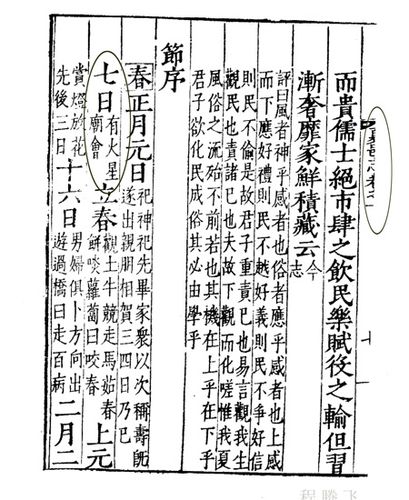 而貴儒士絕市肆之飲民樂賦役之輸但習
漸奢靡家鮮積藏云今志
評曰風者神乎感者也俗者應乎感者也上感
而下應好禮則民不越好義則民不爭好信
則民不偷是故君子重責已也易言觀我生
觀民也責諸已也夫故下觀而化嗟惟我夏
風俗之流殆不前若也其機在上乎在下乎
君子欲化民成俗其必由學乎
節序
春正月元日祀神祀先畢家衆以次稱壽旣遂出親朋相賀三四日乃已
七日有火星廟會立春觀土牛競走馬姑春鮮啖蘿蔔曰咬春上元
賞燈放花先後三日十六日男婦俱卜方向出遊過橋曰走百病二月二
程騰飞